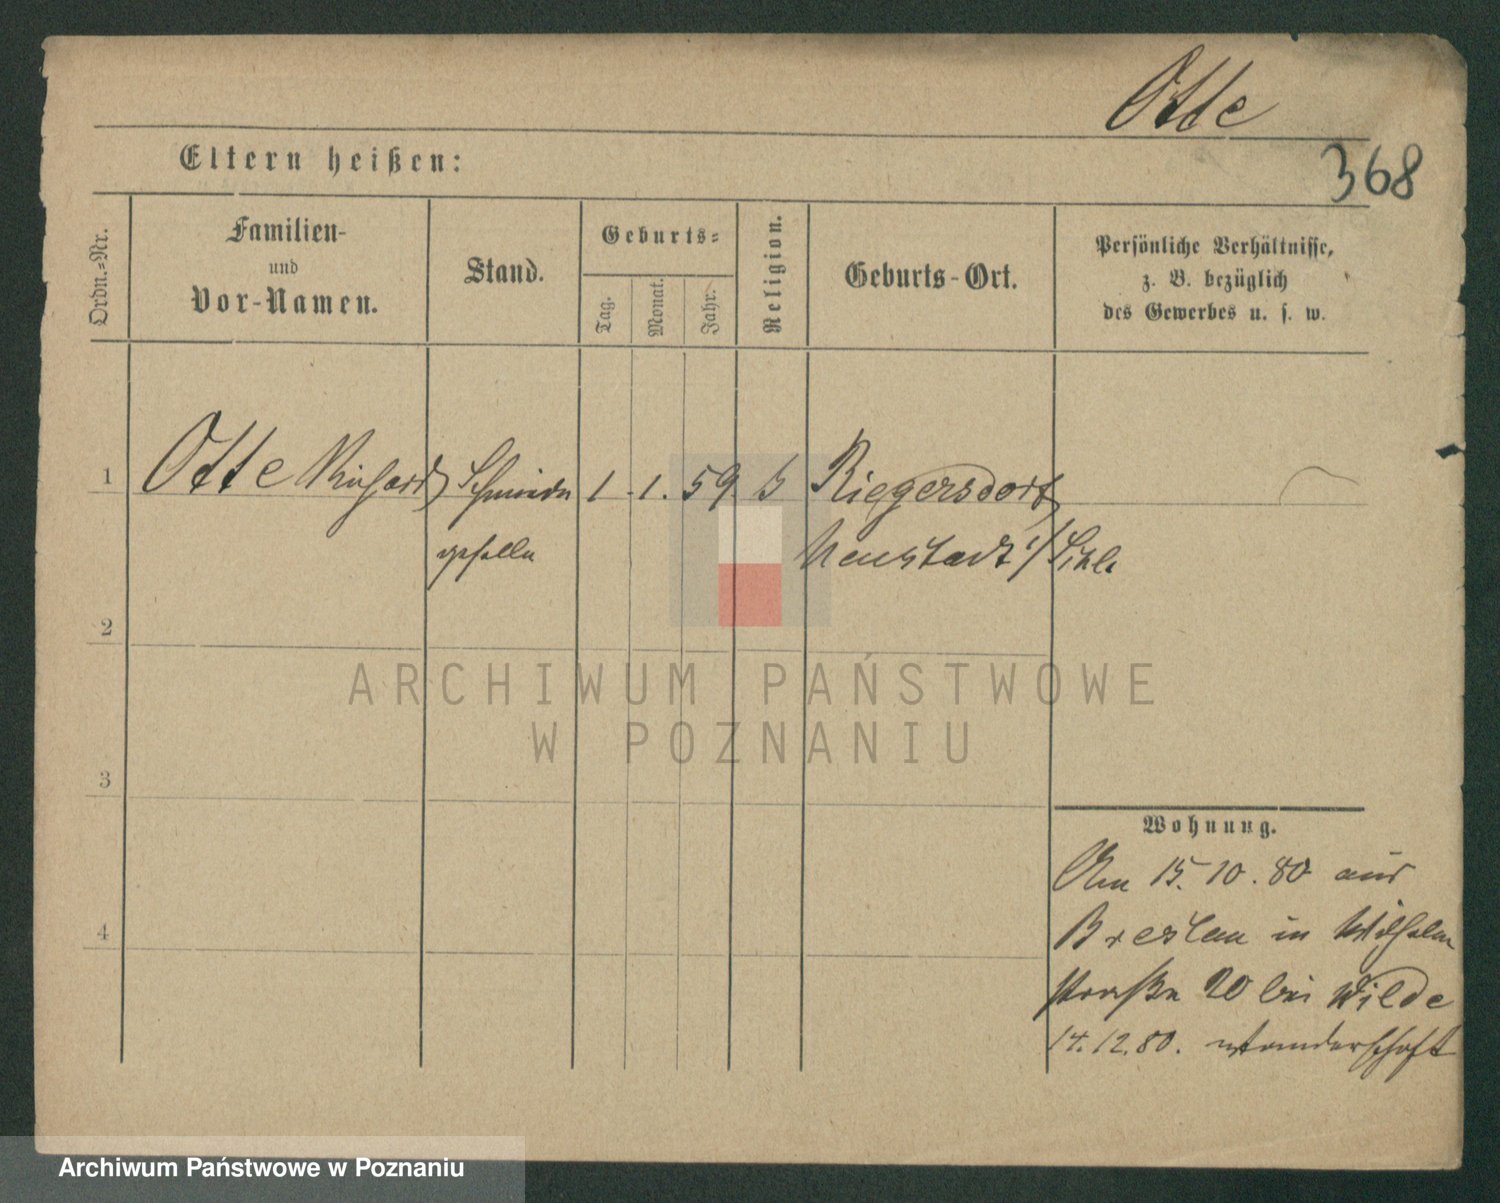 Otte
Eltern heißen:
368
Ordn.-Nr.
Familien-
und
Vor-Namen.
Stand.
Geburts-
Tag.
Monat.
Jahr.
Religion.
Geburts-Ort.
Persönliche Verhältnisse,
z. B. bezüglich
des Gewerbes u. s. w.
1 Otte Richard 1. 1. 59 Riegersdorf
geselle Neustadt o/Schl
2
ARCHIWUM PAŃSTWOWE
W POZNANIU
3
Wohnung.
Am 15. 10. 80 aus
4
Breslau in Wilhelm
straße 20 bei Wilde
14. 12. 80. Wanderschaft
Archiwum Państwowe w Poznaniu